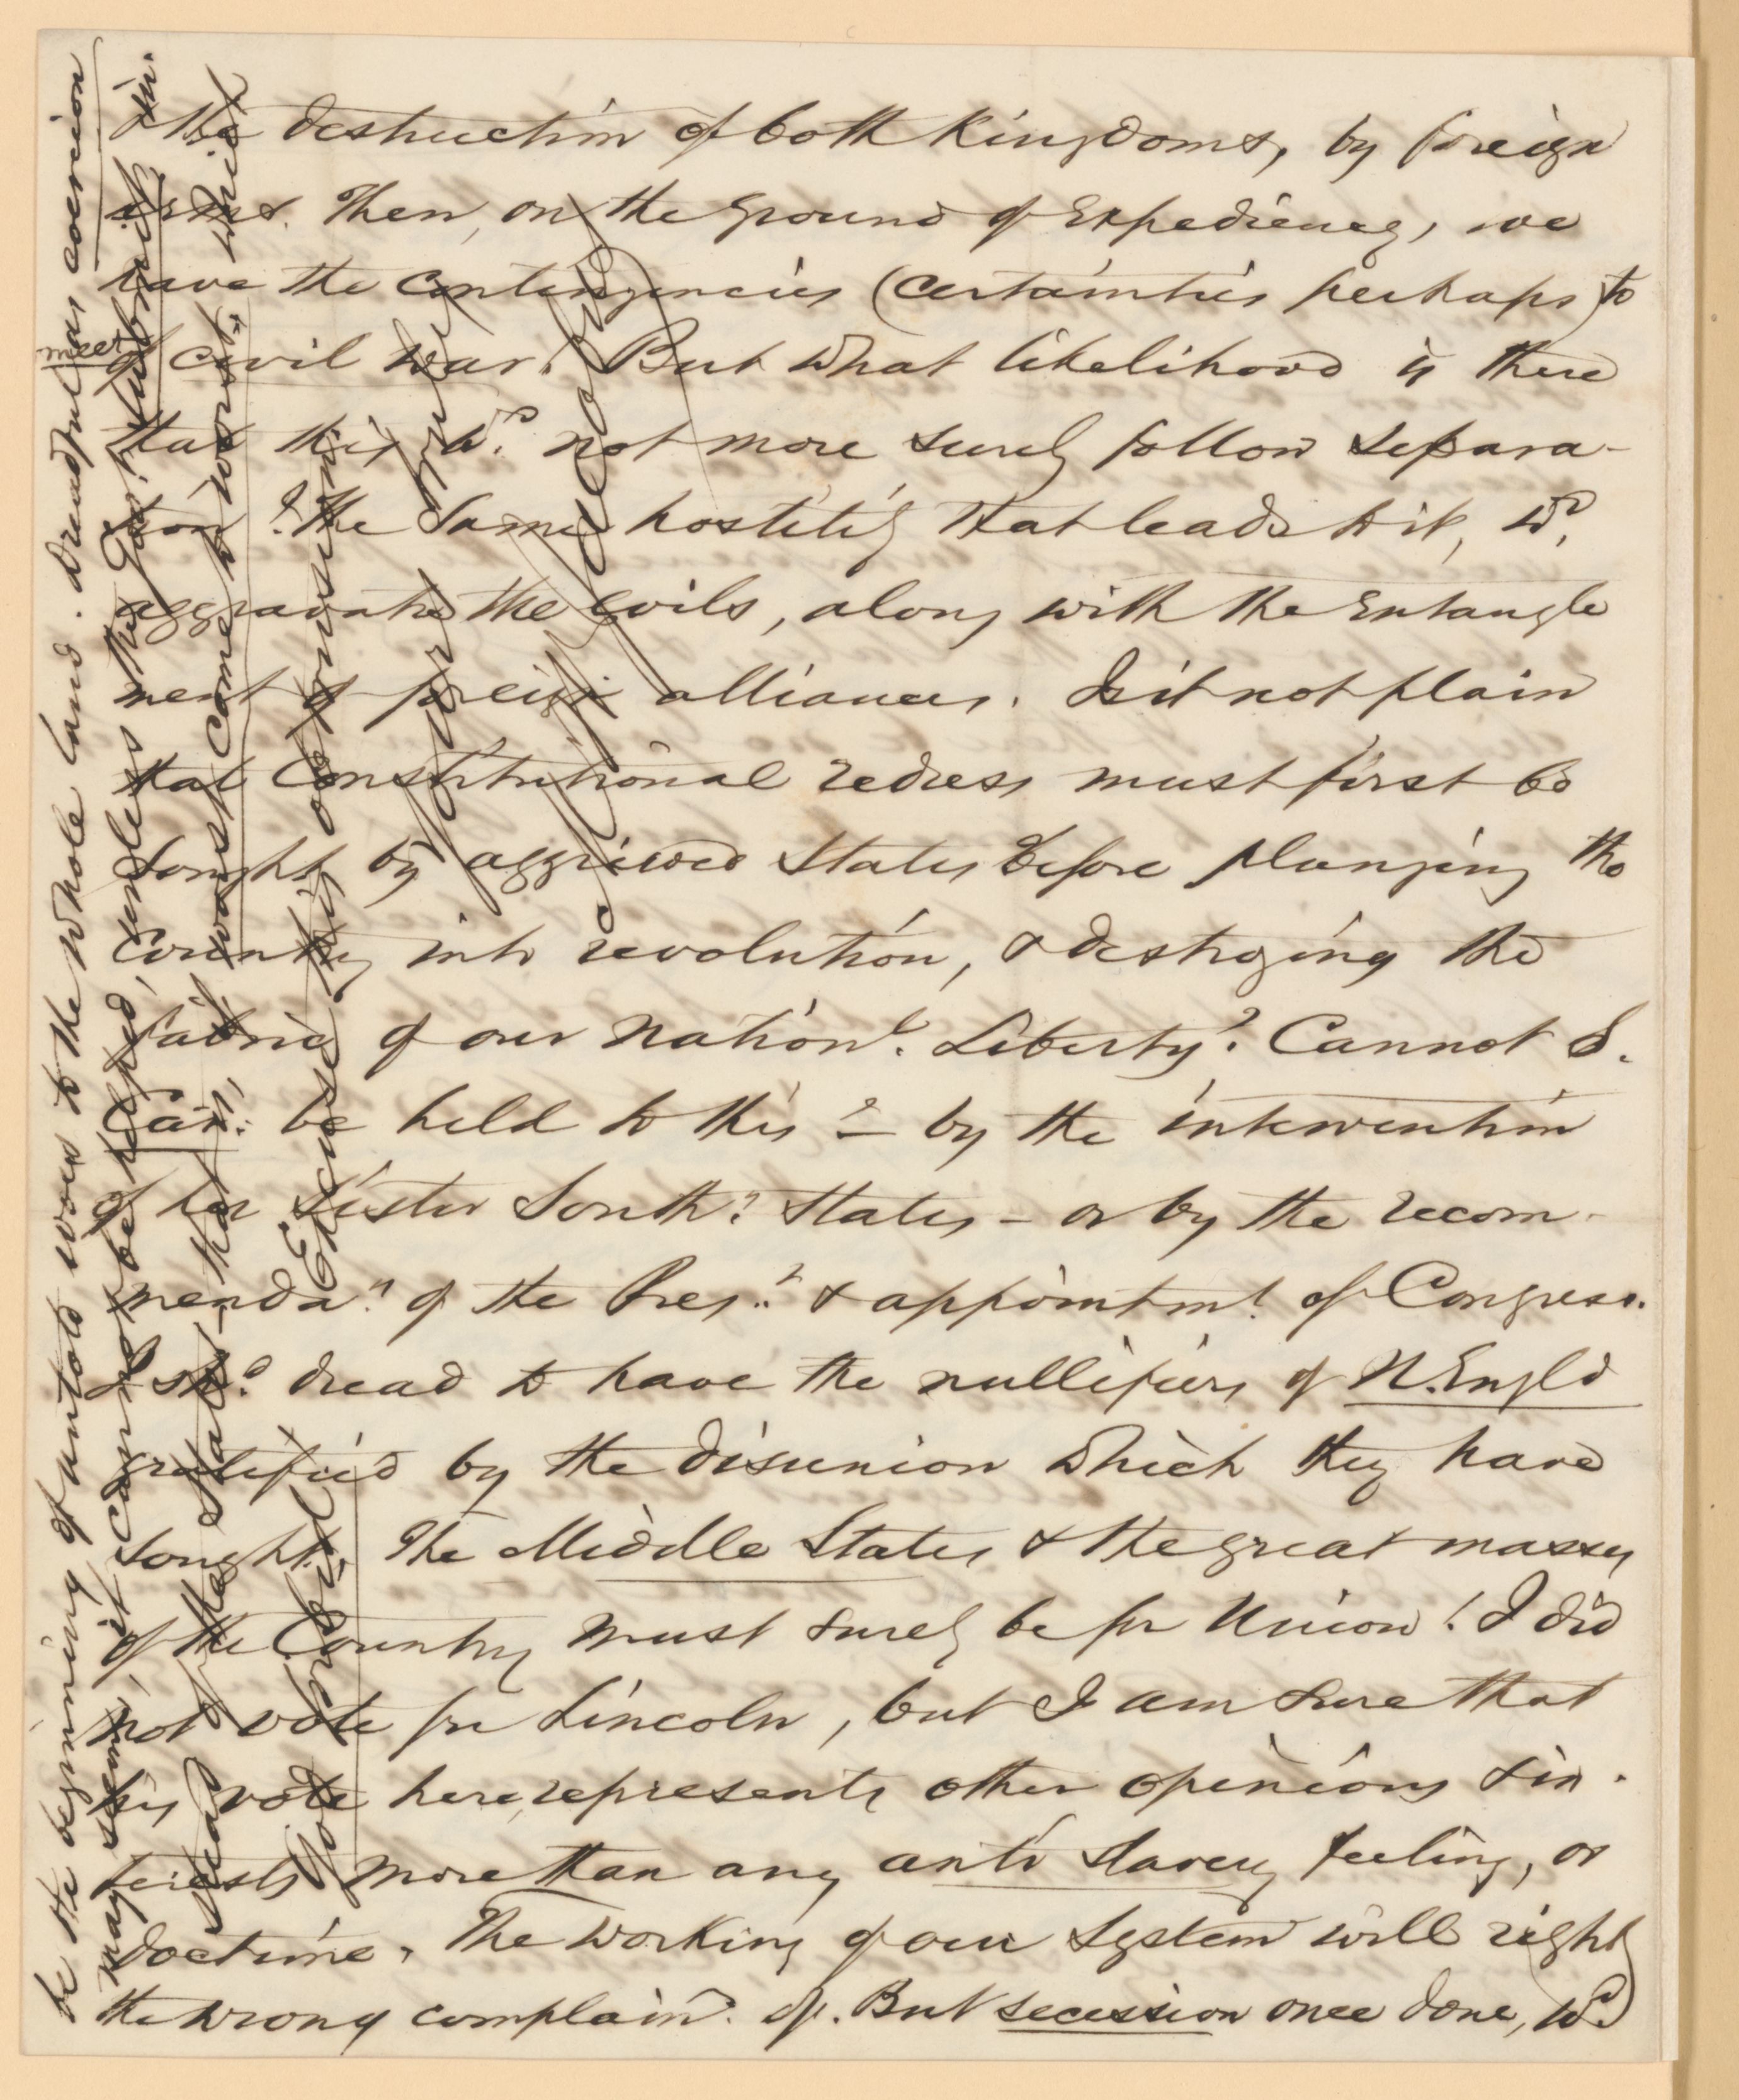 & the destruction of both Kingdoms, by foreign
arms. Then, on the ground of Expediency, we
have the contingencies (certainties perhaps) to
meet
of civil war. But what likelihood is there
that this wd. not more surely follow separa-
tion? The same hostility that leads to it, wd.
aggravate the evils, along with the entangle
ment of foreign alliances. Is it not plain
that Constitutional redress must first be
sought by aggrieved States before plunging the
Country into revolution, & destroying the
fabric of our nationl. Liberty? Cannot S.
Car: be held to this? - by the intervention
of her sister Southn. States - or by the recom-
mendan. of the Prest. & appointmt. of Congress.
I shd. dread to have the nullifiers of N. Engld
gratified by the disunion which they have
sought. The Middle States & the great masses
of the Country must surely be for Union! I did
not vote for Lincoln, but I am sure that
his vote here represents other opinions & in-
terests more than any anti slavery feeling, or
doctrine. The working of our system will right
the wrong complaind. of. But secession once done, wd.
be the beginning of untold woes to the whole land. Dreadful as coercion
may seem, it cannot be helped, unless the Govt. submit
Mead of the State - that worst come to worst, which
for
Excuse this